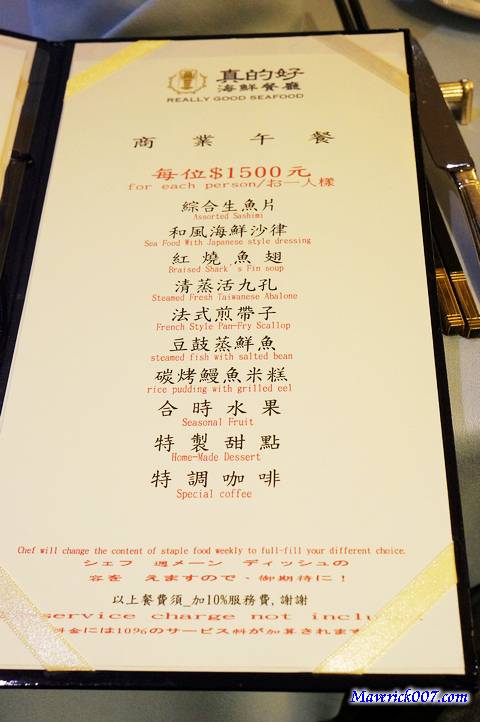 真的好
海鮮餐廳
REALLY GOOD SEAFOOD
商業午餐
每位$1500元
for each person/お一人樣
綜合生魚片
Assorted Sashimi
和風海鮮沙律
Sea Food With Japanese style dressing
紅燒魚翅
Braised Shark's Fin soup
清蒸活九孔
Steamed Fresh Taiwanese Abalone
法式煎帶子
French Style Pan-Fry Scallop
豆鼓蒸鮮魚
steamed fish with salted bean
碳烤鰻魚米糕
rice pudding with grilled eel
合時水果
Seasonal Fruit
特製甜點
Home-Made Dessert
特調咖啡
Special coffee
Chef will change the content of staple food weekly to full-fill your different choice.
シェフ 週メーン ディッシュの
容を えますので、御期待に!
以上餐費須_加10%服務費,謝謝
service charge not inclu
料金には10%のサービス料が加算されます
Maverick007.com